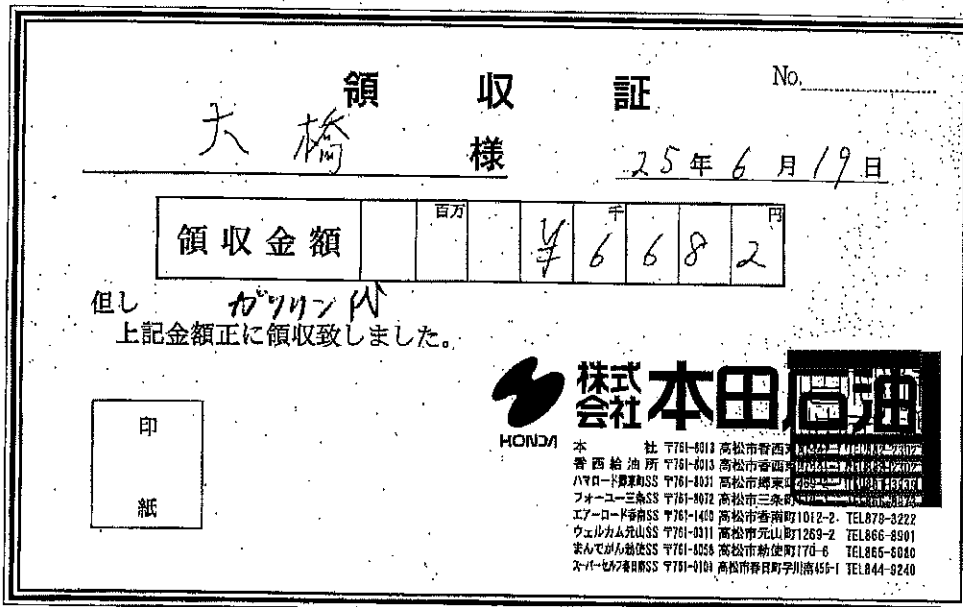 領収証
No.
大橋 様
25年6月19日
領収金額 百万 千 円
¥6682
但し ガソリン代
上記金額正に領収致しました。
印
紙
HONDA
株式会社 本田石油
本社 〒761-8013 高松市香西
香西給油所 〒761-8013 高松市香西
ハマロード郷東町SS 〒761-8031 高松市郷東
フォーユー三条SS 〒761-8072 高松市三条町
エアーロード香南SS 〒761-1400 高松市香南町1012-2. TEL879-3222
ウェルカム元山SS 〒761-0311 高松市元山町1269-2 TEL866-8901
まんでがん勅使SS 〒761-8058 高松市勅使町770-6 TEL865-6080
スーパーセルフ春日南SS 〒761-0101 高松市春日町字川南456-1 TEL844-9240